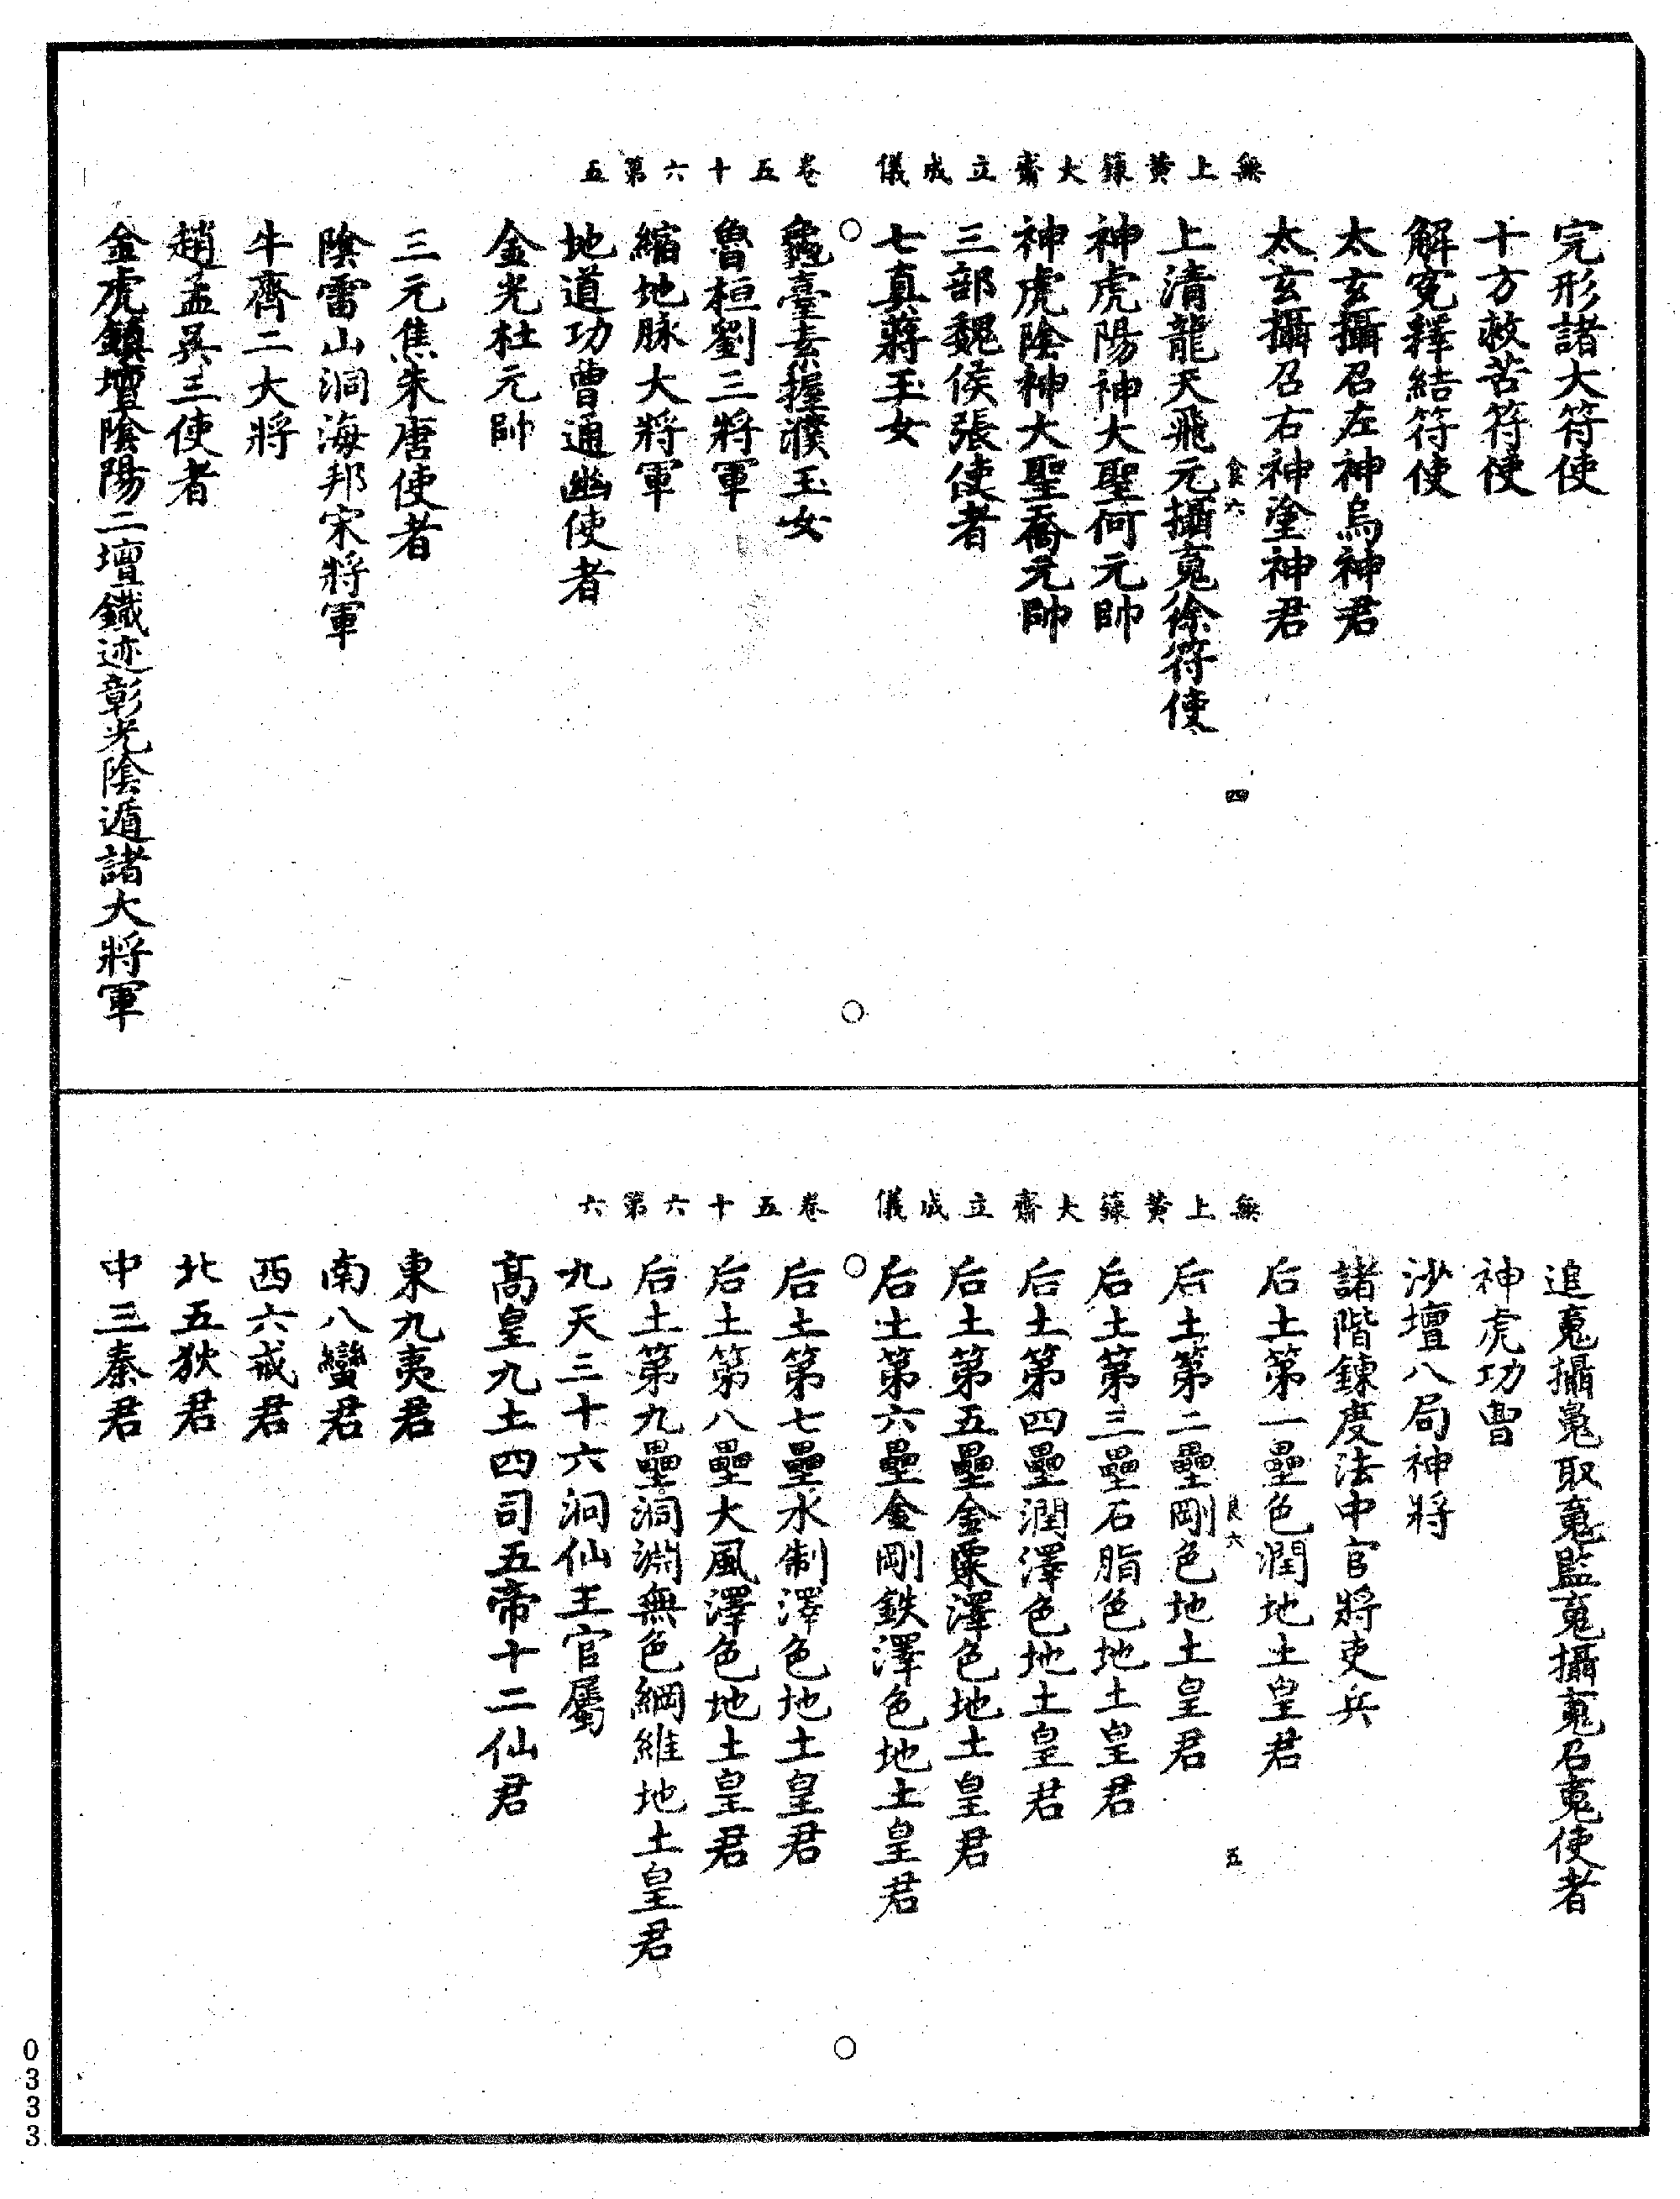 無上黃籙大齋立成儀　卷五十六第五
完形諸大符使
十方救苦符使
解冤釋結符使
太玄攝召左神烏神君
太玄攝召右神塗神君
食六　四
上清龍天飛元攝䰟徐符使
神虎陽神大聖何元帥
神虎陰神大聖喬元帥
三部魏侯張使者
七真蔣玉女
龜臺素握濮玉女
魯桓劉三將軍
縮地脉大將軍
地道功曹通幽使者
金光杜元帥
三元焦朱唐使者
陰雷山洞海邦宋將軍
牛齊二大將
趙孟吳三使者
金虎鎮壇陰陽二壇鐵迹彰光陰遁諸大將軍
無上黃籙大齋立成儀　卷五十六第六
追䰟攝䰟取䰟監䰟攝䰟召䰟使者
神虎功曹
沙壇八局神將
諸階鍊度法中官將吏兵
后土第一壘色潤地土皇君
六　五
后土第二壘剛色地土皇君
后土第三壘石脂色地土皇君
后土第四壘潤澤色地土皇君
后土第五壘金粟澤色地土皇君
后土第六壘金剛鉄澤色地土皇君
后土第七壘水制澤色地土皇君
后土第八壘大風澤色地土皇君
后土第九壘洞淵無色綱維地土皇君
九天三十六洞仙王官屬
高皇九土四司五帝十二仙君
東九夷君
南八蠻君
西六戎君
北五狄君
中三秦君
0333